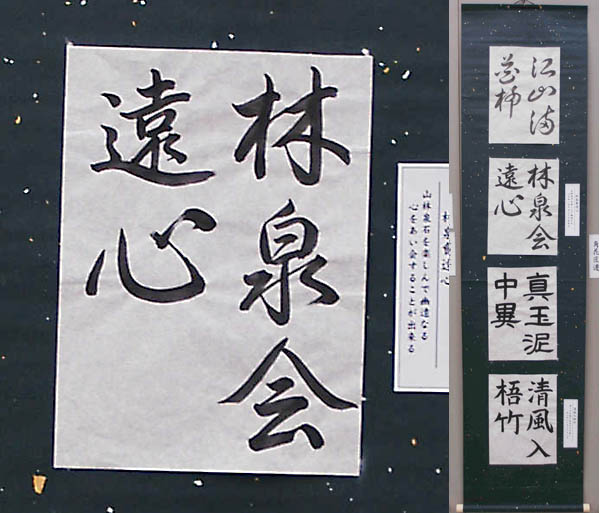 林泉会
遠心
山林泉石を楽しんで幽遠なる
心をあい会することが出来る
江山満
花柳
林泉会
遠心
真玉泥
中異
清風入
梧竹